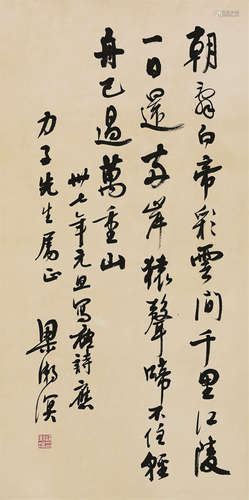 朝辭白帝彩雲間千里江陵
一日還兩岸猿聲啼不住輕
舟已過萬重山
卅七年元旦寫唐詩應
力子先生屬正
梁漱溟